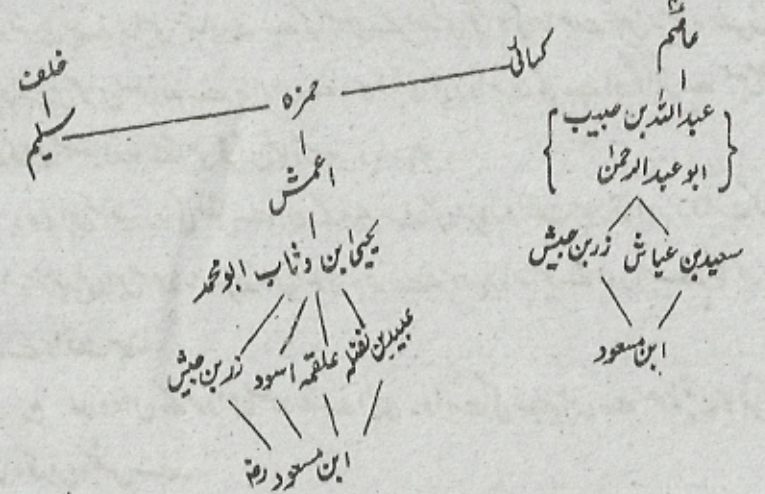 عاصم
عبداللہ بن حبیب
ابو عبدالرحمن
سعید بن عیاش زر بن حبیش
ابن مسعود
کسائی
حمزہ
سلیم
خلف
اعمش
یحییٰ ابن وثاب ابو محمد
عبید بن نضلہ علقمہ اسود زر بن حبیش
ابن مسعود رضہ